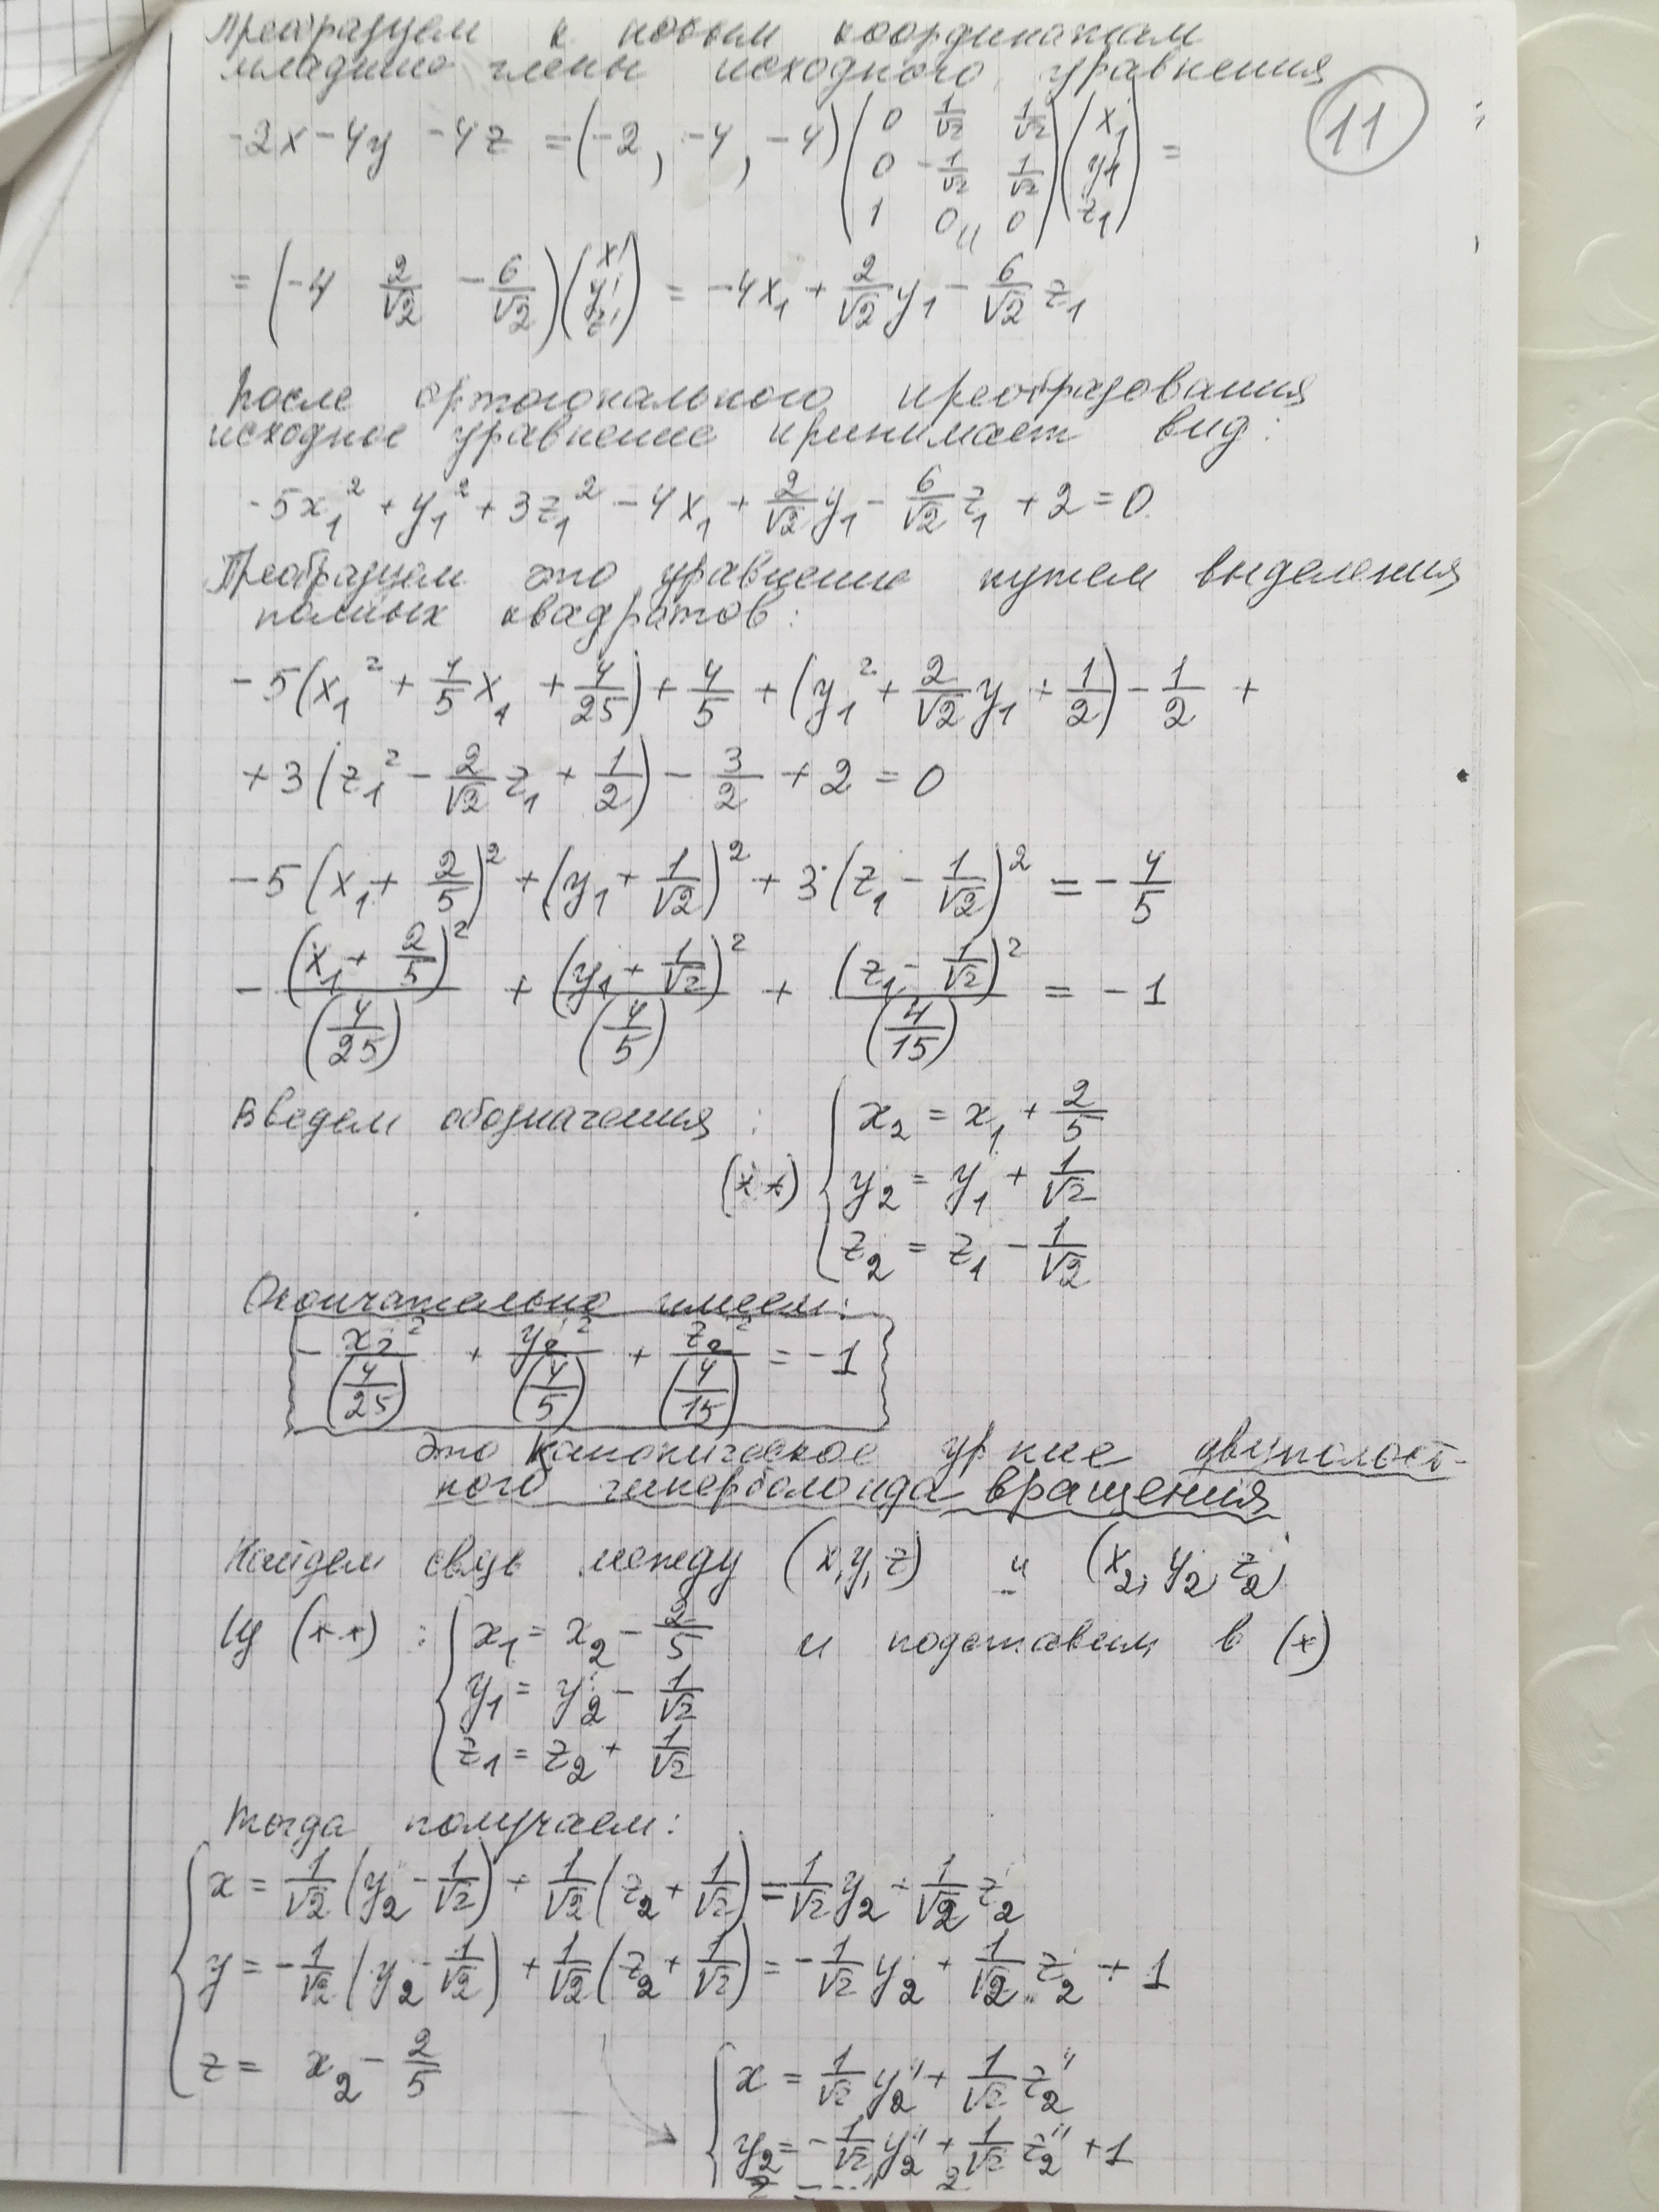 Преобразуем к новым координатам
младшие члены исходного уравнения
11
-2x - 4y - 4z = (-2, -4, -4) (0 1/√2 1/√2; 0 -1/√2 1/√2; 1 0 0) (x1; y1; z1) =
= (-4 2/√2 -6/√2) (x'; y'; z') = -4x1 + 2/√2 y1 - 6/√2 z1
После ортогонального преобразования
исходное уравнение принимает вид:
-5x1² + y1² + 3z1² - 4x1 + 2/√2 y1 - 6/√2 z1 + 2 = 0.
Преобразуем это уравнение путем выделения
полных квадратов:
-5(x1² + 4/5 x1 + 4/25) + 4/5 + (y1² + 2/√2 y1 + 1/2) - 1/2 +
+ 3(z1² - 2/√2 z1 + 1/2) - 3/2 + 2 = 0
-5(x1 + 2/5)² + (y1 + 1/√2)² + 3(z1 - 1/√2)² = -4/5
- (x1 + 2/5)²/(4/25) + (y1 + 1/√2)²/(4/5) + (z1 - 1/√2)²/(4/15) = -1
Введем обозначения:
(**) { x2 = x1 + 2/5
y2 = y1 + 1/√2
z2 = z1 - 1/√2
Окончательно имеем:
- x2²/(4/25) + y2²/(4/5) + z2²/(4/15) = -1
Это каноническое ур-ние двуполост-
ного гиперболоида вращения
Найдем связь между (x, y, z) и (x2, y2, z2)
Из (**): { x1 = x2 - 2/5 и подставим в (*)
y1 = y2 - 1/√2
z1 = z2 + 1/√2
Тогда получаем:
{ x = 1/√2 (y2 - 1/√2) + 1/√2 (z2 + 1/√2) = 1/√2 y2 + 1/√2 z2
y = -1/√2 (y2 - 1/√2) + 1/√2 (z2 + 1/√2) = -1/√2 y2 + 1/√2 z2 + 1
z = x2 - 2/5
{ x = 1/√2 y2'' + 1/√2 z2''
y2 = -1/√2 y2'' + 1/√2 z2'' + 1